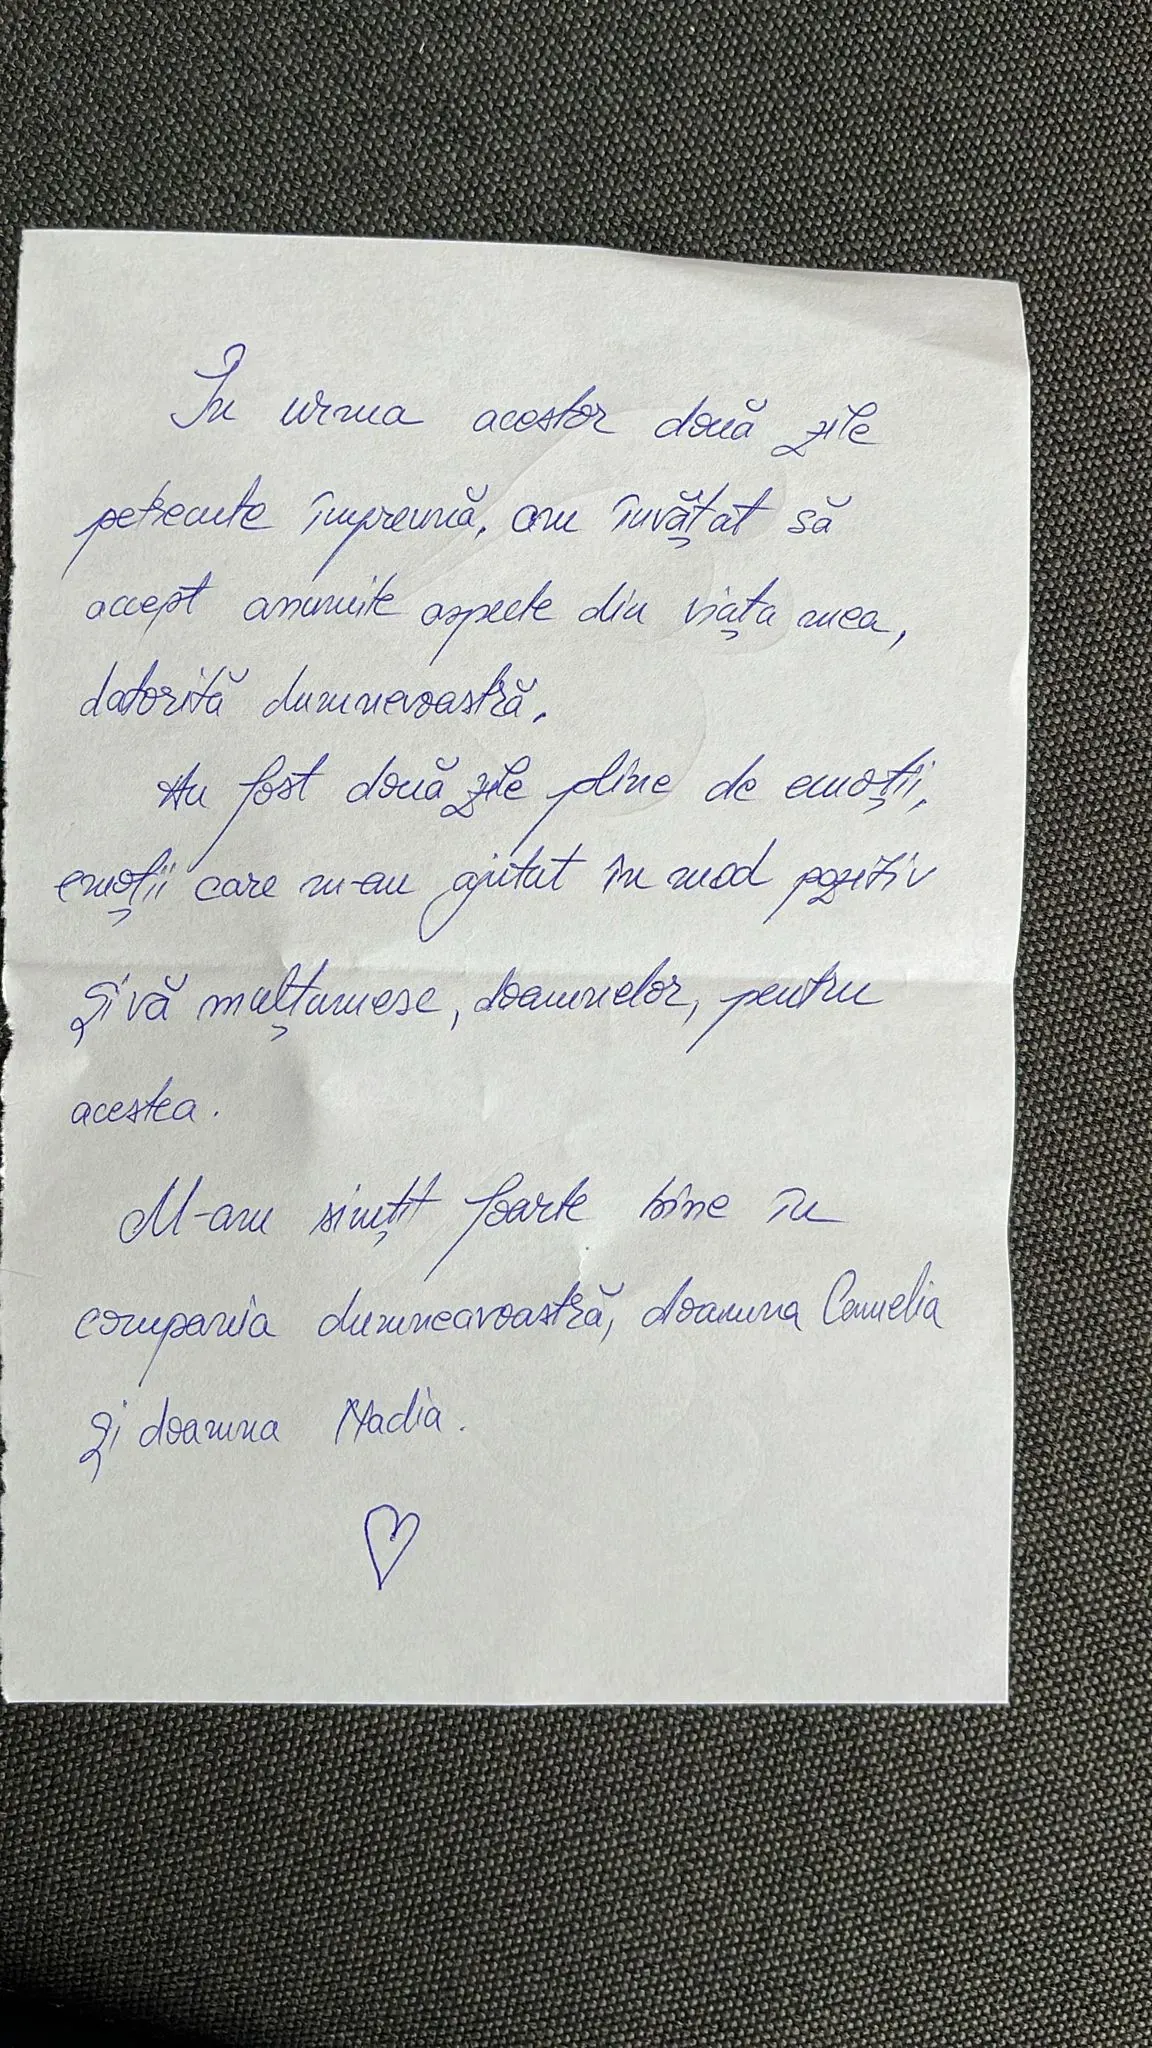 În urma acestor două zile
petrecute împreună, am învățat să
accept anumite aspecte din viața mea,
datorită dumnevoastră.
Au fost două zile pline de emoții,
emoții care m-au ajutat în mod pozitiv
și vă mulțumesc, doamnelor, pentru
acestea.
M-am simțit foarte bine în
compania dumneavoastră, doamna Camelia
și doamna Nadia.